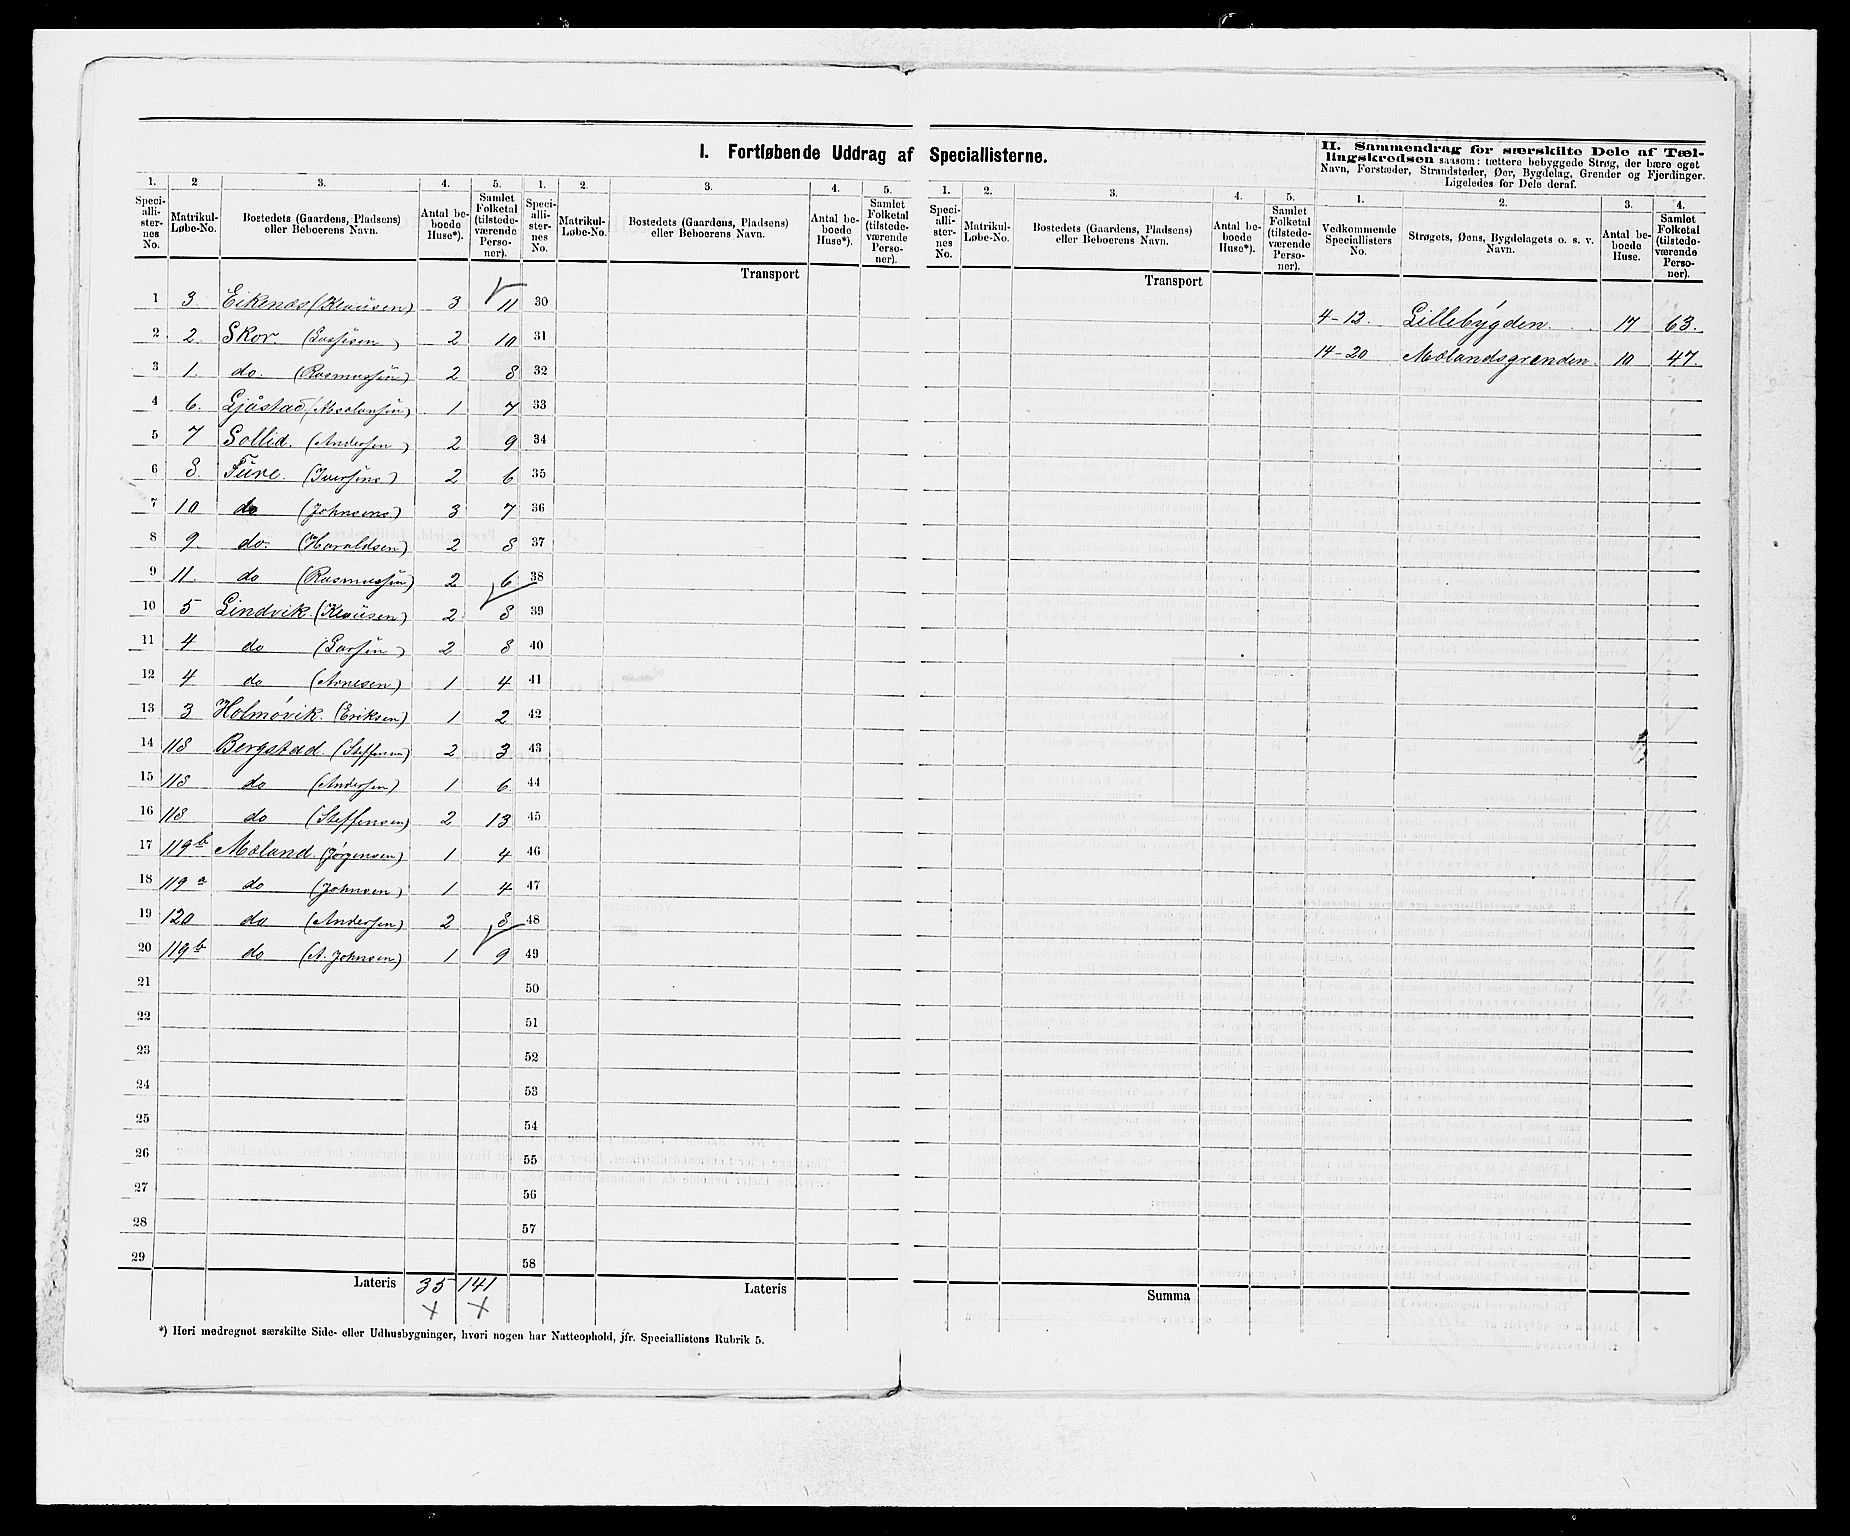 I. Fortløbende Uddrag af Speciallisterne.
II. Sammendrag for særskilte Dele af Tæl-
lingskredsen saasom: tættere bebyggede Strøg, der bære eget
Navn, Forstæder, Strandsteder, Øer, Bygdelag, Grender og Fjerdinger.
Ligeledes for Dele deraf.
1. 2 3. 4. 5. 1. 2. 3. 4. 5. 1. 2. 3. 4. 5. 1. 2. 3. 4.
Speci-alli-ster-nes No. Matrikul-Løbe-No. Bostedets (Gaardens, Pladsens) eller Beboerens Navn. Antal be-boede Huse*). Samlet Folketal (tilstede-værende Perso-ner).
Speci-alli-ster-nes No. Matrikul-Løbe-No. Bostedets (Gaardens, Pladsens) eller Beboerens Navn. Antal be-boede Huse*). Samlet Folketal (tilstede-værende Perso-ner).
Speci-alli-ster-nes No. Matrikul-Løbe-No. Bostedets (Gaardens, Pladsens) eller Beboerens Navn. Antal be-boede Huse*). Samlet Folketal (tilstede-værende Perso-ner).
Vedkommende Speciallisters No. Strøgets, Øens, Bygdelagets o. s. v. Navn. Antal be-boede Huse. Samlet Folketal (tilstede-værende Perso-ner).
Transport Transport
1 3. Eikenæs (Klausen) 3 11 30
2 2. Skor 2 10 31
3 1. do. (Rasmussen) 2 8 32
4 6. Ljåstad (Absalonsen) 1 7 33
5 7 Sollid. (Andersen) 2 9 34
6 8. Fure. (Iversens) 2 6 35
7 10 do (Johnsens) 3 7 36
8 9. do. (Haraldsen) 2 8 37
9 11. do (Rasmussen) 2 6 38
10 5 Lindvik. (Klausen) 2 8 39
11 4 do (Larsen) 2 8 40
12 4 do (Arnesen) 1 4 41
13 3 Holmøvik. (Eriksen) 1 2 42
14 118 Bergstad. (Steffensen) 2 3 43
15 118 do (Andersen) 1 6 44
16 118 do (Steffensen) 2 13 45
17 119b Moland. (Jørgensen) 1 4 46
18 119a do (Johnsen) 1 4 47
19 120 do (Andersen) 2 8 48
20 119b do (A. Johnsen) 1 9 49
21 50
22 51
23 52
24 53
25 54
26 55
27 56
28 57
29 58
Lateris 35 141 Lateris Summa
4-12. Lillebygden. 17 63.
14-20 Molandsgrenden. 10 47.
*) Heri medregnet særskilte Side- eller Udhusbygninger, hvori nogen har Natteophold, jfr. Speciallistens Rubrik 5.